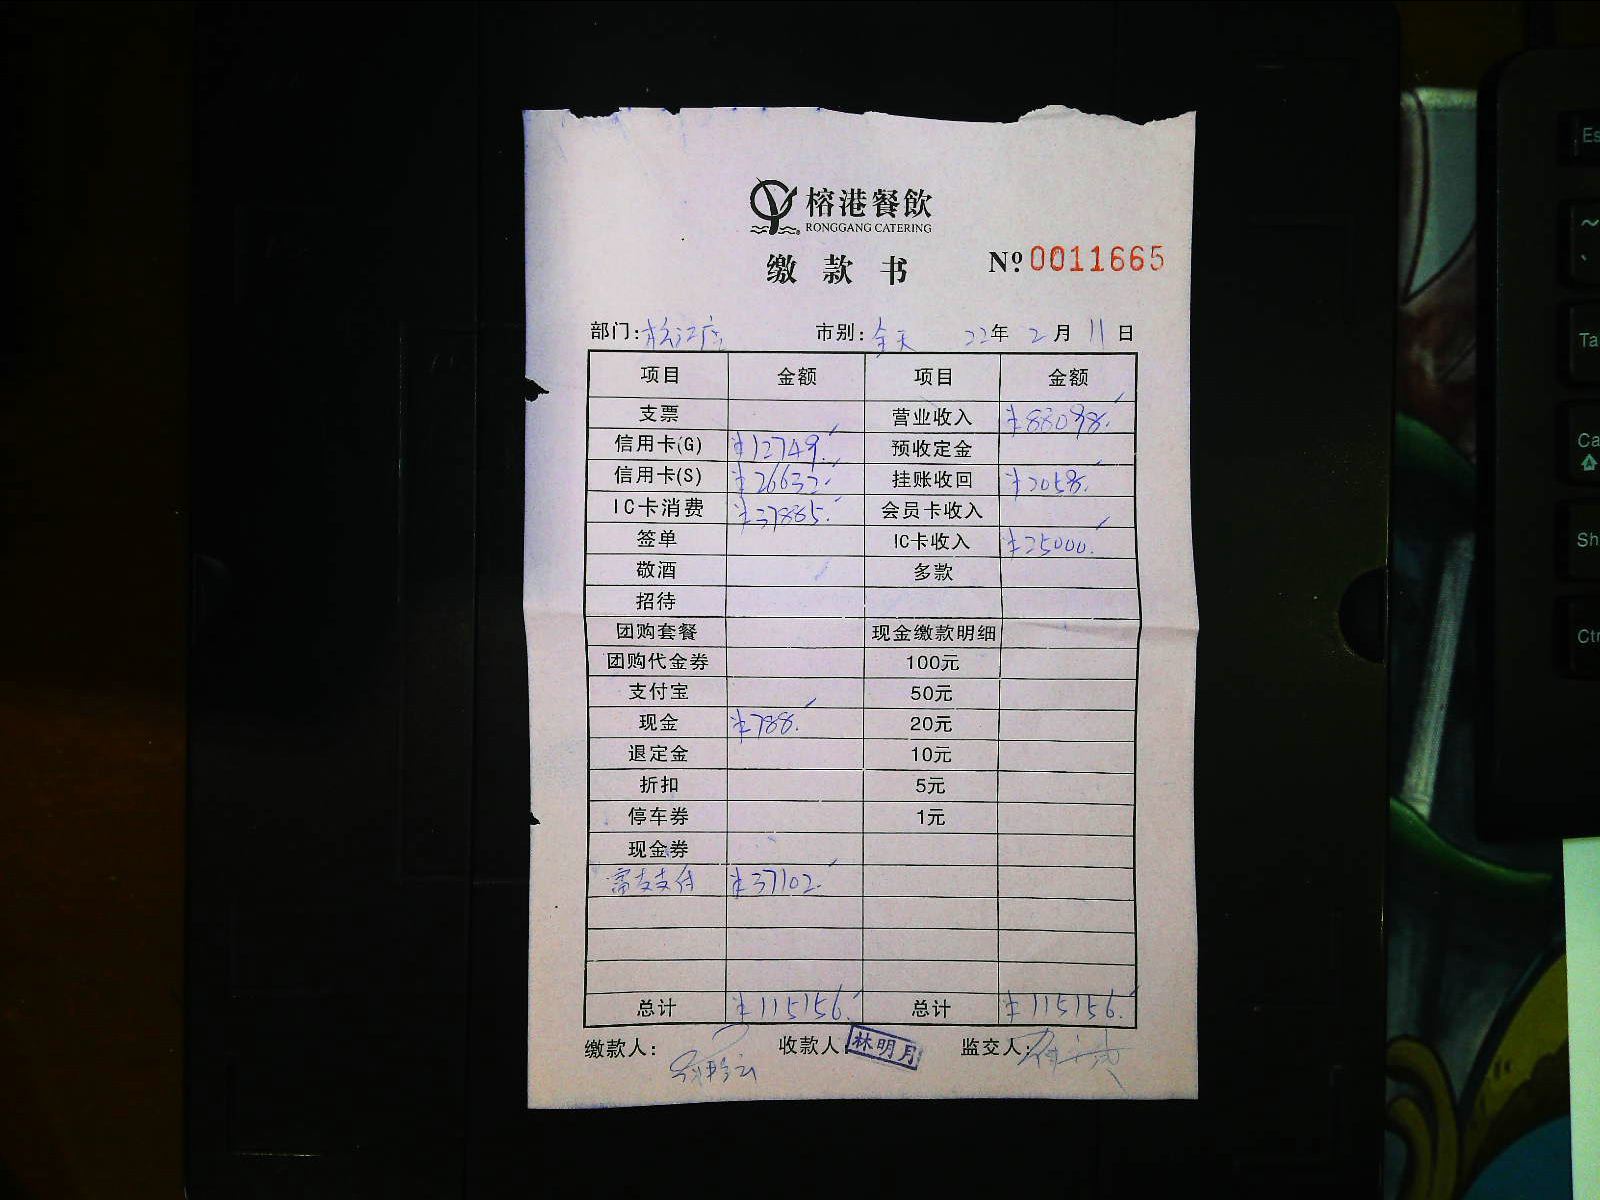 榕港餐飲
RONGGANG CATERING
缴款书 Nº 0011665
部门:松江店 市别:全天 22年 2月 11日
项目 金额 项目 金额
支票 营业收入 ¥88098.
信用卡(G) ¥12749. 预收定金
信用卡(S) ¥26632. 挂账收回 ¥2058.
IC卡消费 ¥37885. 会员卡收入
签单 IC卡收入 ¥25000.
敬酒 多款
招待
团购套餐 现金缴款明细
团购代金券 100元
支付宝 50元
现金 ¥788. 20元
退定金 10元
折扣 5元
停车券 1元
现金券
富友支付 ¥37102.
总计 ¥115156. 总计 ¥115156.
缴款人: 收款人 林明月 监交人:
Es
~
Ta
Ca
Sh
Ctr